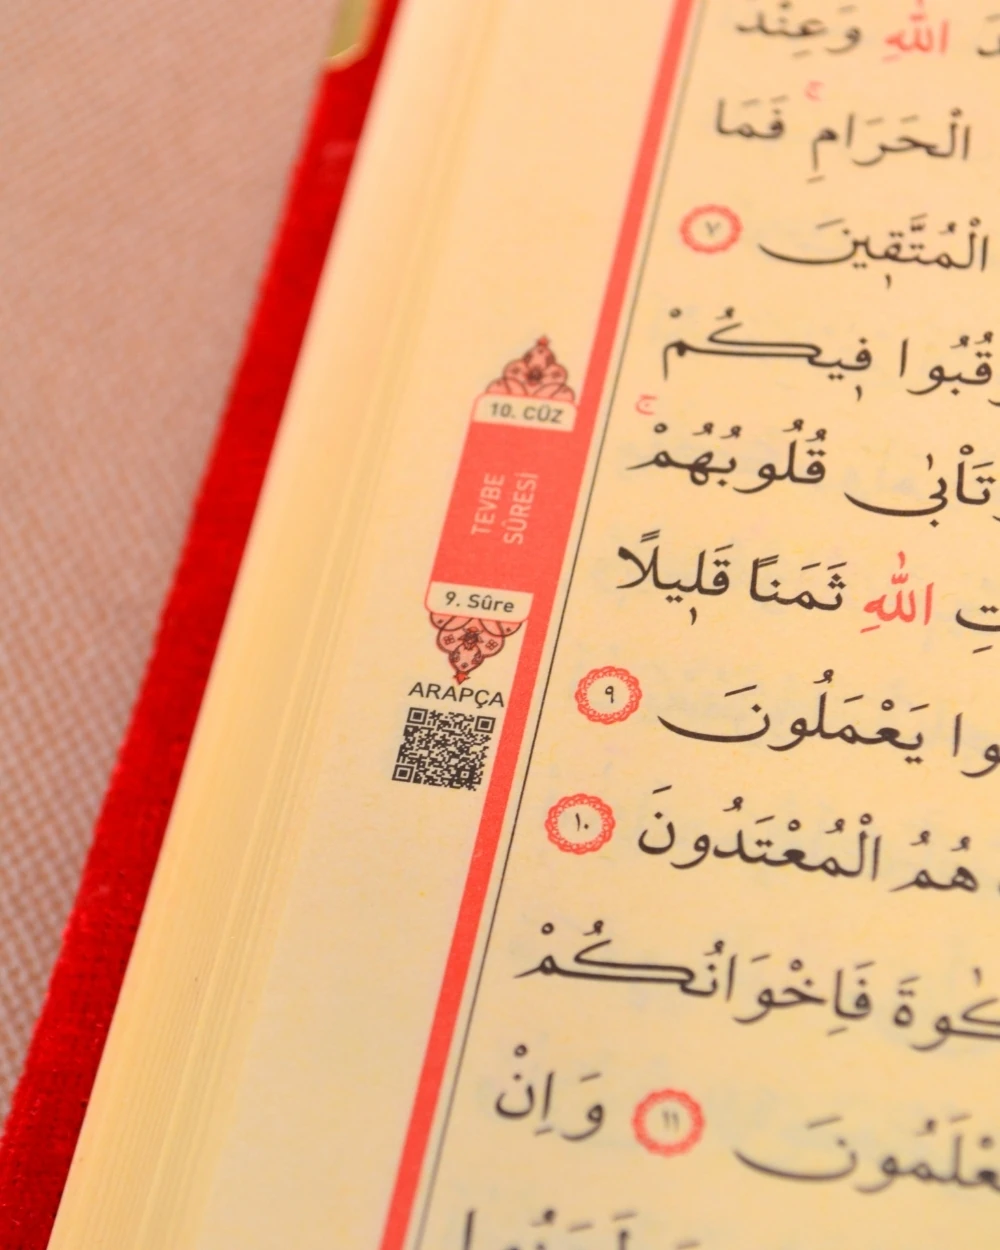 اللّٰهِ وَعِنْدَ
الْحَرَامِۚ فَمَا
الْمُتَّقٖينَ ٧
فٖيكُمْ
قُلُوبُهُمْۚ
اللّٰهِ ثَمَنًا قَلٖيلًا
يَعْمَلُونَ ٩
هُمُ الْمُعْتَدُونَ ١٠
فَاِخْوَانُكُمْ
١١ وَاِنْ
10. CÜZ
TEVBE
SÛRESİ
9. Sûre
ARAPÇA